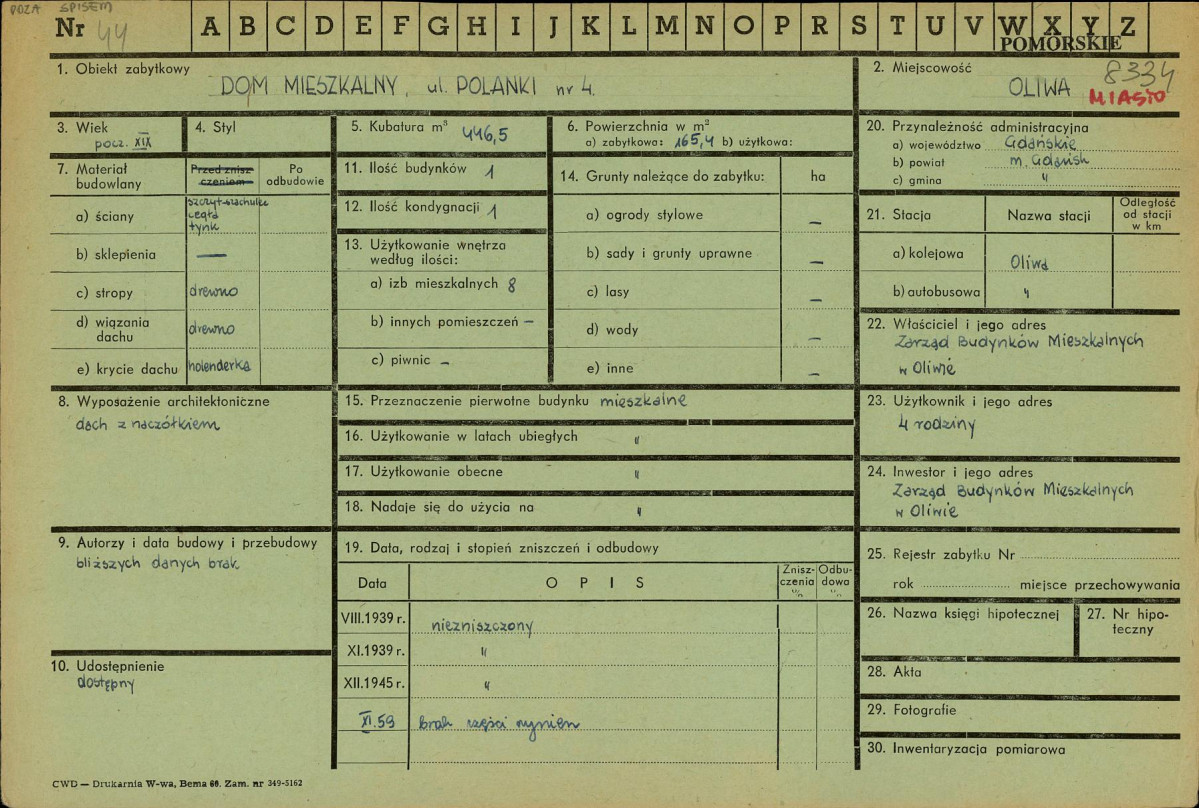 POZA SPISEM
Nr 44 A B C D E F G H I J K L M N O P R S T U V W X Y Z
POMORSKIE
1. Obiekt zabytkowy
DOM MIESZKALNY, ul. POLANKI nr 4.
2. Miejscowość
8334
OLIWA MIASTO
3. Wiek
pocz. XIX
4. Styl
5. Kubatura m³ 446,5
6. Powierzchnia w m²
a) zabytkowa: 165,4 b) użytkowa:
7. Materiał budowlany
Przed zniszczeniem
Po odbudowie
a) ściany
szczyt-szachulec
cegła
tynk
b) sklepienia —
c) stropy drewno
d) wiązania dachu drewno
e) krycie dachu holenderka
8. Wyposażenie architektoniczne
dach z naczółkiem
9. Autorzy i data budowy i przebudowy
bliższych danych brak
10. Udostępnienie
dostępny
11. Ilość budynków 1
12. Ilość kondygnacji 1
13. Użytkowanie wnętrza
według ilości:
a) izb mieszkalnych 8
b) innych pomieszczeń —
c) piwnic —
14. Grunty należące do zabytku: ha
a) ogrody stylowe —
b) sady i grunty uprawne —
c) lasy —
d) wody —
e) inne —
15. Przeznaczenie pierwotne budynku mieszkalne
16. Użytkowanie w latach ubiegłych "
17. Użytkowanie obecne "
18. Nadaje się do użycia na "
19. Data, rodzaj i stopień zniszczeń i odbudowy
Data OPIS Zniszczenia % Odbudowa %
VIII.1939 r. niezniszczony
XI.1939 r. "
XII.1945 r. "
XI.59 brak części rynien
20. Przynależność administracyjna
a) województwo Gdańskie
b) powiat m. Gdańsk
c) gmina "
21. Stacja Nazwa stacji Odległość od stacji w km
a) kolejowa Oliwa
b) autobusowa "
22. Właściciel i jego adres
Zarząd Budynków Mieszkalnych
w Oliwie
23. Użytkownik i jego adres
4 rodziny
24. Inwestor i jego adres
Zarząd Budynków Mieszkalnych
w Oliwie
25. Rejestr zabytku Nr
rok miejsce przechowywania
26. Nazwa księgi hipotecznej
27. Nr hipoteczny
28. Akta
29. Fotografie
30. Inwentaryzacja pomiarowa
CWD — Drukarnia W-wa, Bema 60. Zam. nr 349-5162